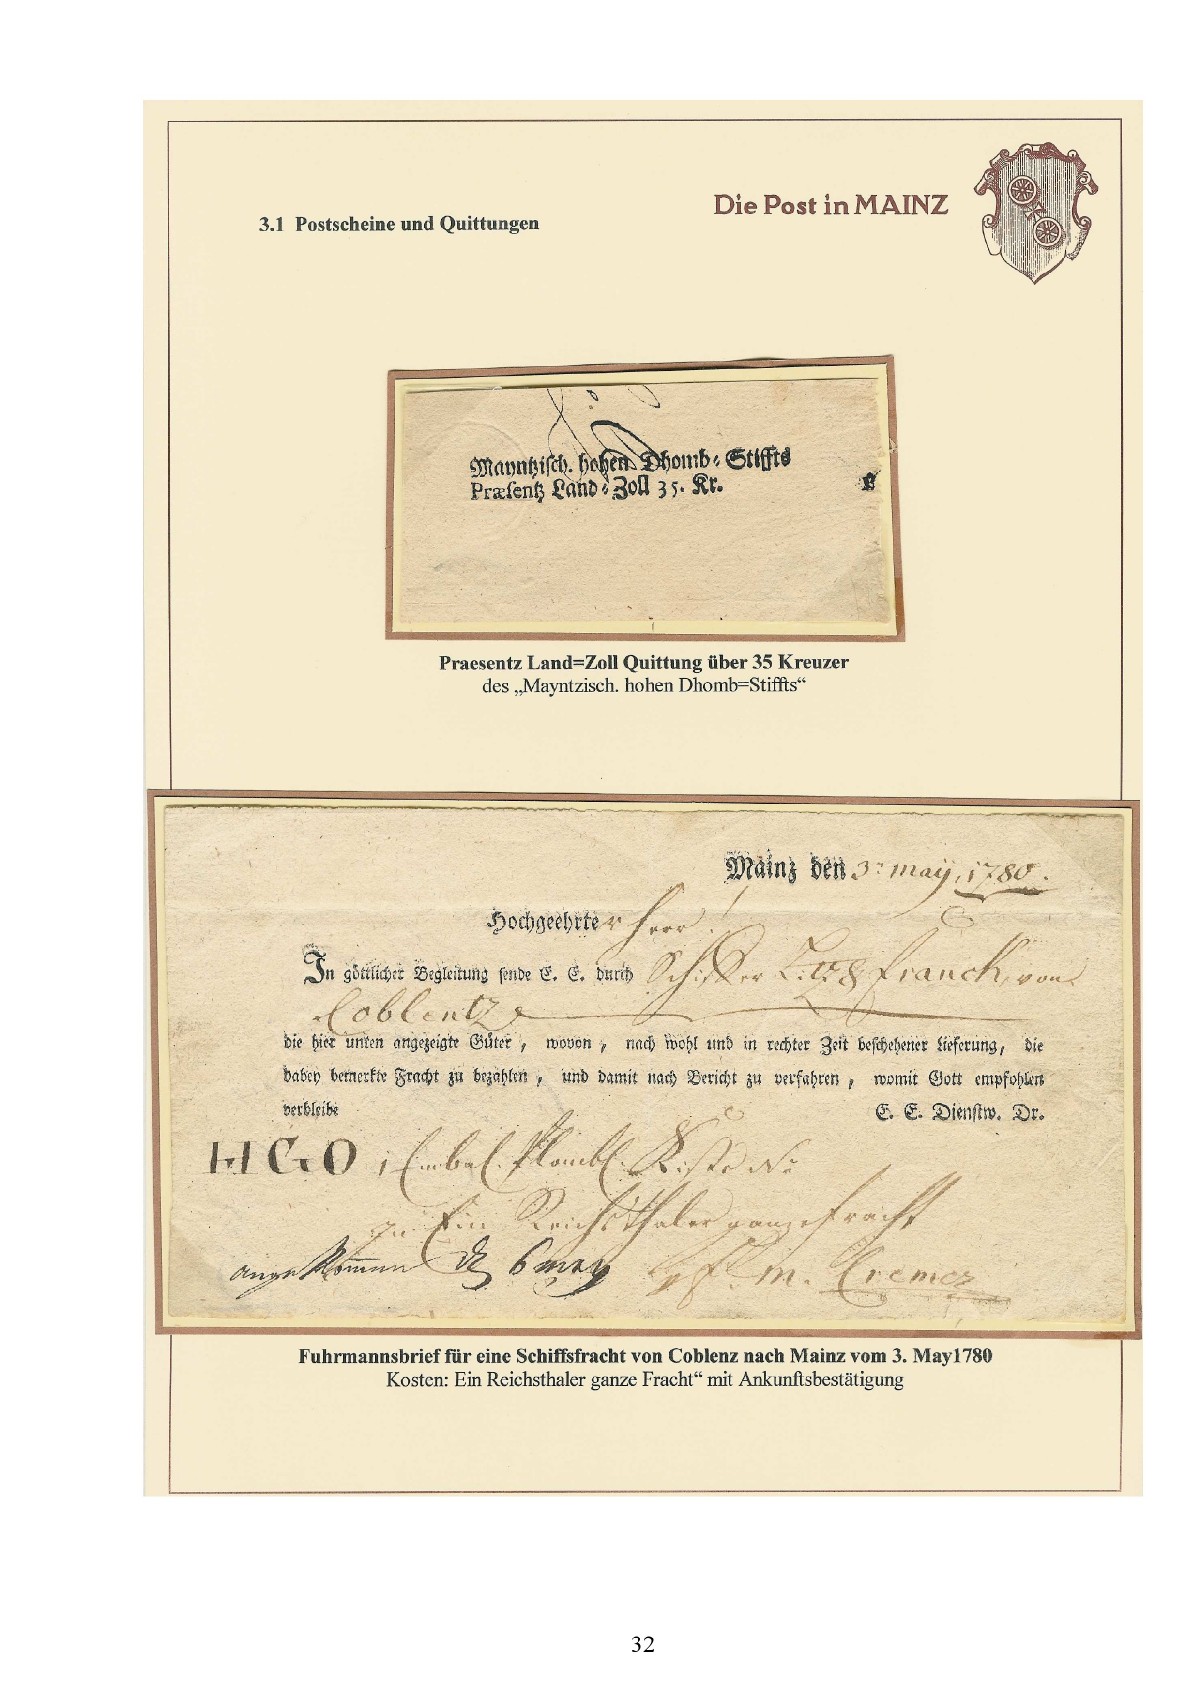 Die Post in MAINZ
3.1 Postscheine und Quittungen
Mayntzisch. hohen Dhomb⸗Stiffts
Præsentz Land⸗Zoll 35. Kr.
Praesentz Land=Zoll Quittung über 35 Kreuzer
des „Mayntzisch. hohen Dhomb=Stiffts“
Mainz den 3. may, 1780.
Hochgeehrter Herr!
In göttlicher Begleitung sende E. E. durch Schiffer franck, von
Coblentz
die hier unten angezeigte Güter, wovon, nach wohl und in rechter Zeit beschehener Lieferung, die
dabey bemerkte Fracht zu bezahlen, und damit nach Bericht zu verfahren, womit Gott empfohlen
verbleibe E. E. Dienstw. Dr.
HGO 1 Kiste N:
Ein Reichsthaler ganze fracht
angekommen 6 may m. Cremer
Fuhrmannsbrief für eine Schiffsfracht von Coblenz nach Mainz vom 3. May1780
Kosten: Ein Reichsthaler ganze Fracht“ mit Ankunftsbestätigung
32